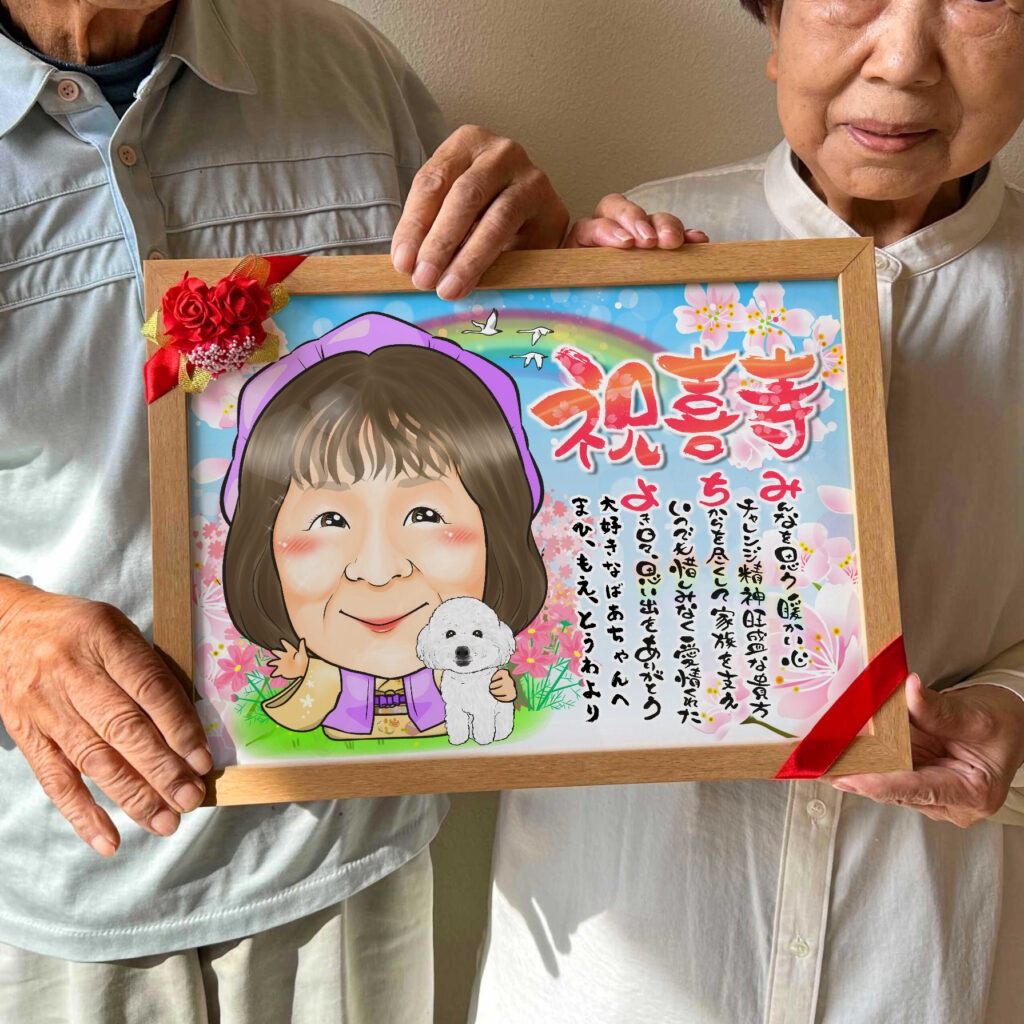 祝喜寿
みんなを思う暖かい心
チャレンジ精神旺盛な貴方
ちからを尽くして家族を支え
いつでも惜しみなく愛情くれた
よき日々、思い出をありがとう
大好きなばあちゃんへ
まひ、もえ、とうわより